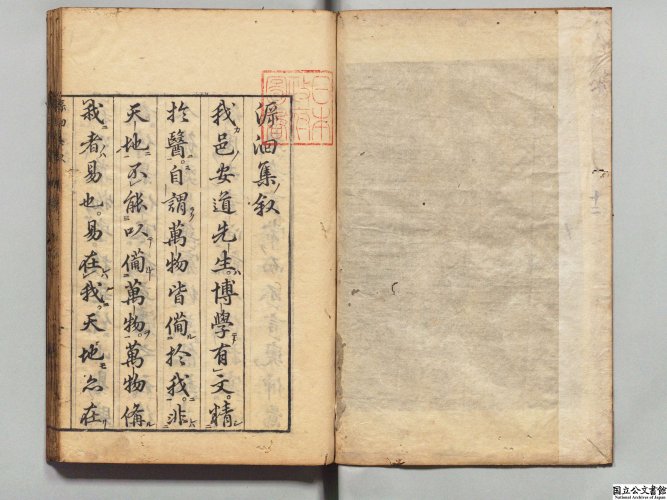 溯洄集敘
我邑安道先生博學有文精
於醫自謂萬物皆備於我非
天地不能以備萬物萬物備
我者易也易在我天地亦在
日本
政府
圖書
国立公文書館
National Archives of Japan